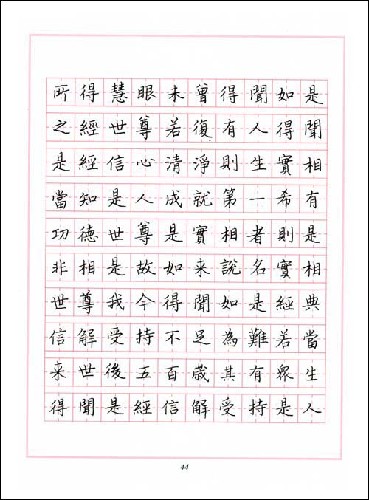 所得慧眼未曾得聞如是
之經世尊若復有人得聞
是經信心清淨則生實相
當知是人成就第一希有
功德世尊是實相者則是
非相是故如来說名實相
世尊我今得聞如是經典
信解受持不足為難若當
来世後五百歲其有眾生
得聞是經信解受持是人
44